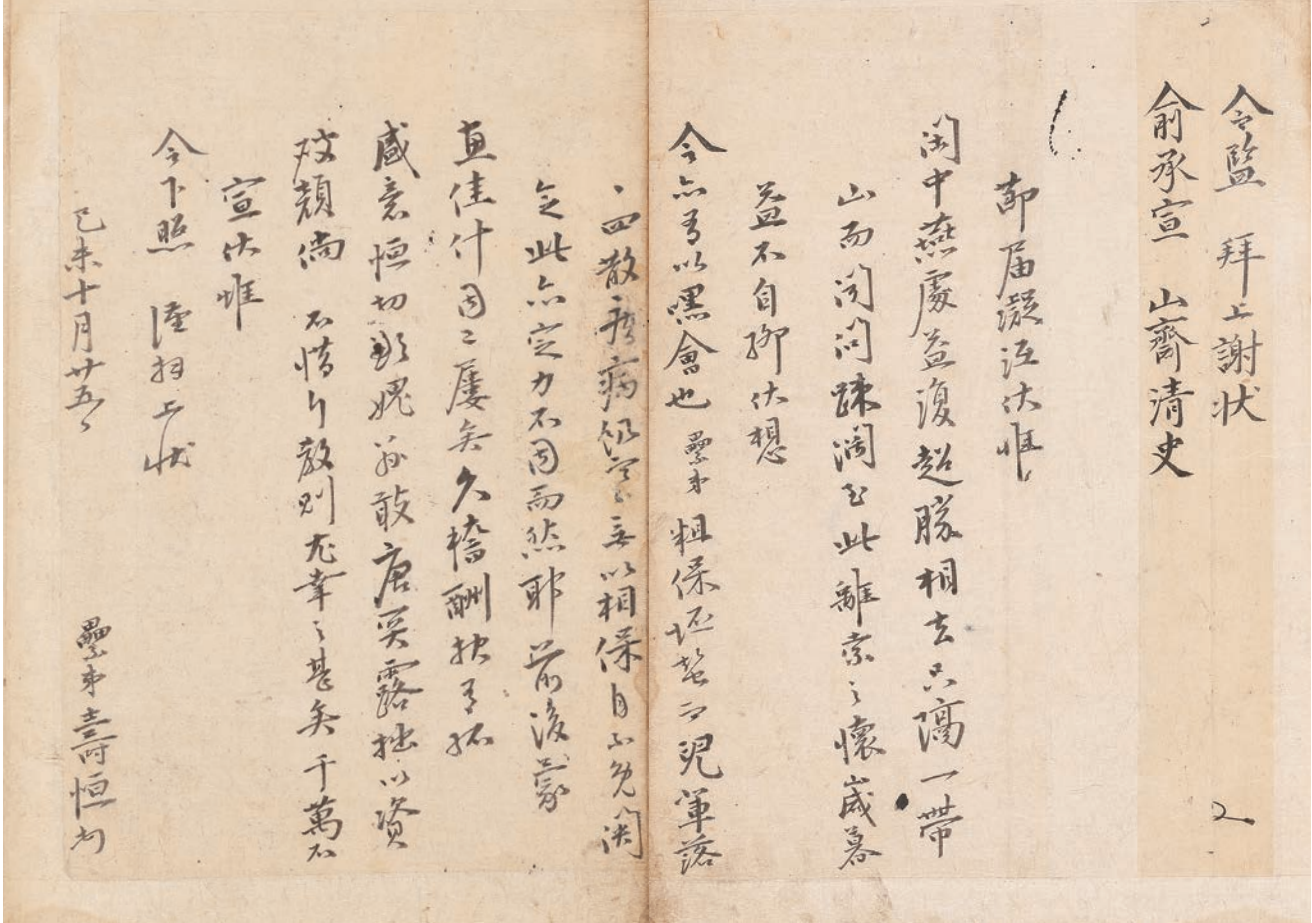 令監 拜上謝狀
俞承宣 山齋清史
節届凝沍伏惟
閑中燕處益復超勝相去只隔一帶
山而聞問踈濶至此離索之懷歲暮
益不自聊伏想
令亦有以嘿會也 纍弟粗保坯蟄而兒軍落
四散疾病無以相保自不免関
念此亦定力不固而然耶 前後蒙
惠佳什固已屢矣久稽酬報有孤
盛意恒切歉愧茲敢唐突露拙以資
破顔倘 不惜斤教則尤幸之甚矣千萬不
宣伏惟
令下照 謹拜上狀
己未十月廿五
纍弟壽恒